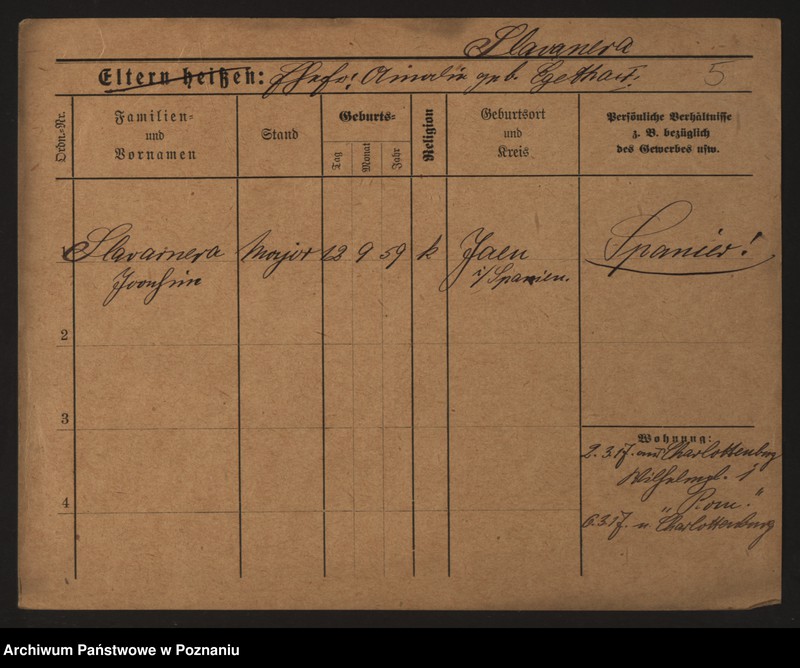 Slavanera
Eltern heißen: Ehefr: Amalie geb. 5
Ordn.-Nr.
Familien-
und
Vornamen
Stand
Geburts-
Tag
Monat
Jahr
Religion
Geburtsort
und
Kreis
Persönliche Verhältnisse
z. B. bezüglich
des Gewerbes usw.
1 Major 12 9 59 k Jaen Spanier!
i/Spanien.
2
3
4
Wohnung:
2.3.17. Charlottenburg
Wilhelmpl. 1
"Rom."
6.3.17. n. Charlottenburg
Archiwum Państwowe w Poznaniu